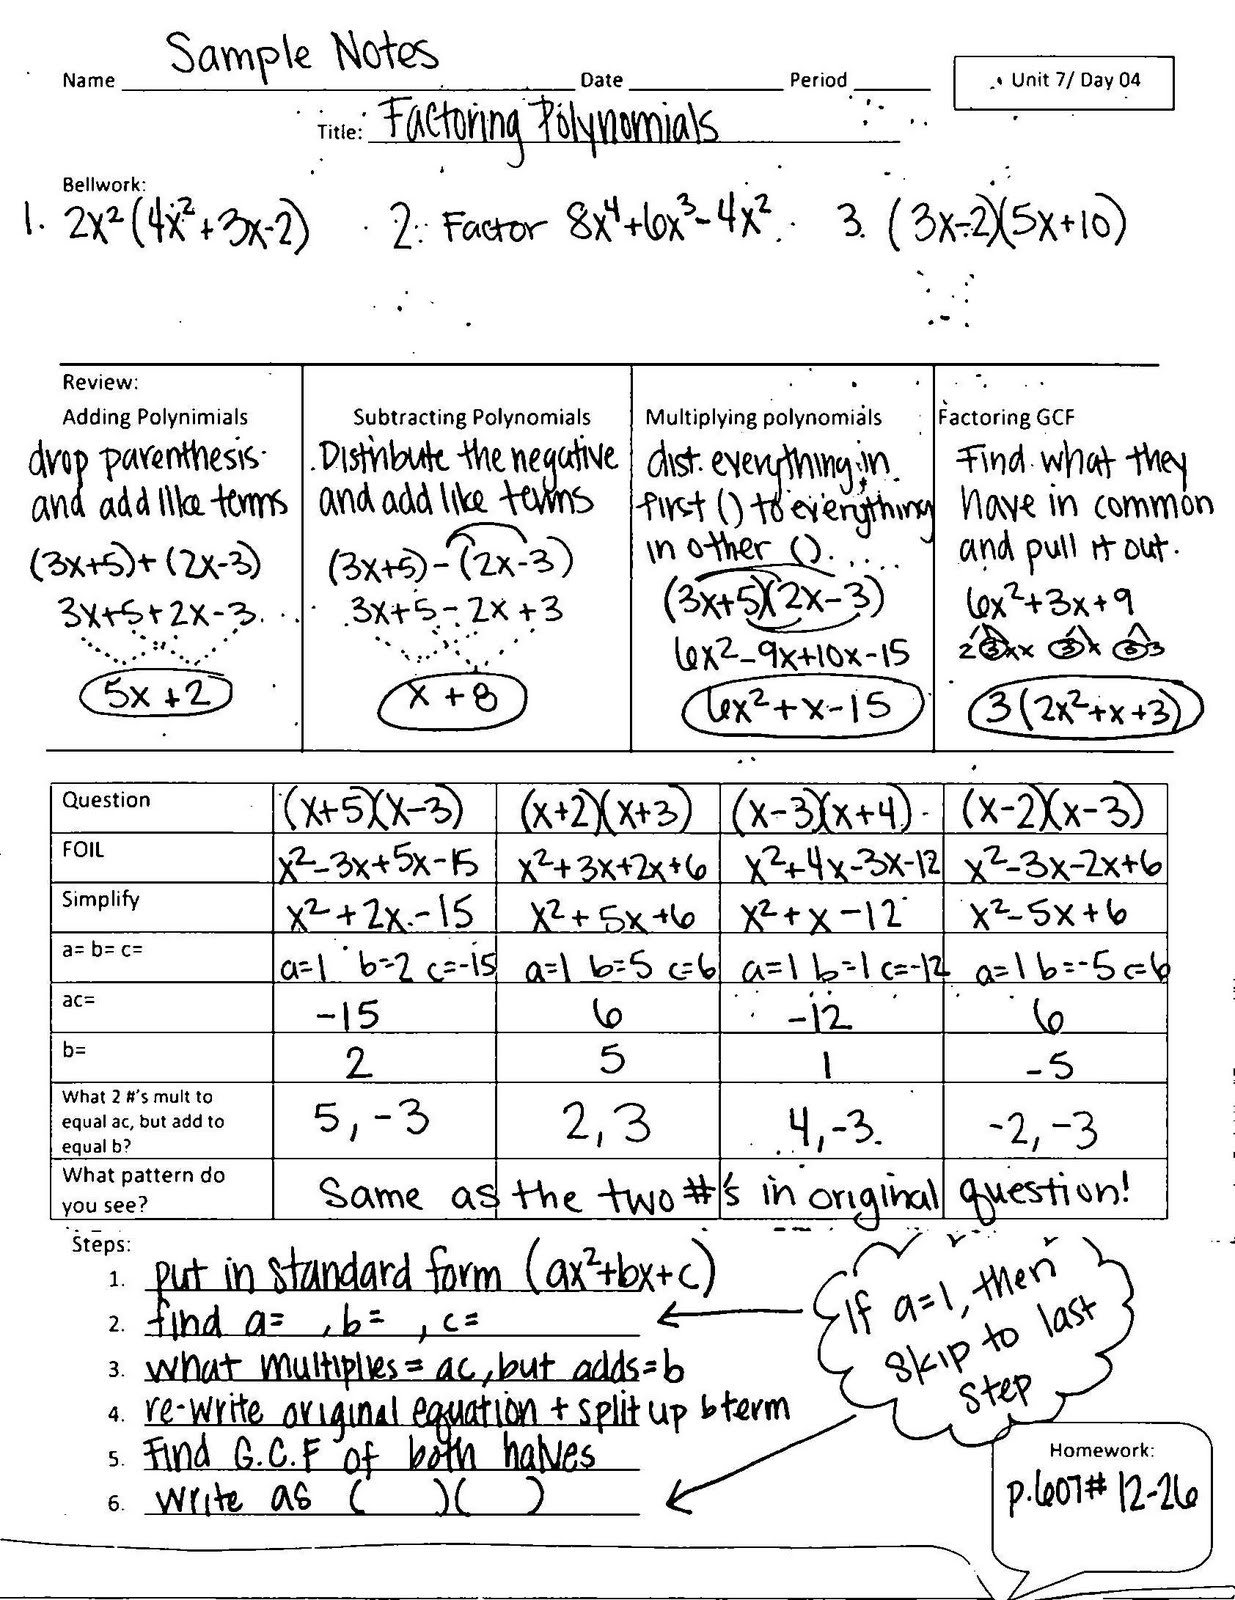 Name Sample Notes Date Period Unit 7/ Day 04
Title: Factoring Polynomials
Bellwork:
1. 2x²(4x²+3x-2) 2. Factor 8x⁴+6x³-4x² 3. (3x-2)(5x+10)
Review:
Adding Polynimials
drop parenthesis
and add like terms
(3x+5)+(2x-3)
3x+5+2x-3
5x+2
Subtracting Polynomials
Distribute the negative
and add like terms
(3x+5)-(2x-3)
3x+5-2x+3
x+8
Multiplying polynomials
dist. everything in
first () to everything
in other ().
(3x+5)(2x-3)
6x²-9x+10x-15
6x²+x-15
Factoring GCF
Find what they
have in common
and pull it out.
6x²+3x+9
2 3 x x 3 x 3 3
3(2x²+x+3)
Question (x+5)(x-3) (x+2)(x+3) (x-3)(x+4) (x-2)(x-3)
FOIL x²-3x+5x-15 x²+3x+2x+6 x²+4x-3x-12 x²-3x-2x+6
Simplify x²+2x-15 x²+5x+6 x²+x-12 x²-5x+6
a= b= c= a=1 b=2 c=-15 a=1 b=5 c=6 a=1 b=1 c=-12 a=1 b=-5 c=6
ac= -15 6 -12 6
b= 2 5 1 -5
What 2 #'s mult to
equal ac, but add to
equal b?
5, -3 2, 3 4, -3 -2, -3
What pattern do
you see?
Same as the two #'s in original question!
Steps:
1. put in standard form (ax²+bx+c)
2. find a= , b= , c=
3. what multiplies = ac, but adds = b
4. re-write original equation + split up b term
5. Find G.C.F of both halves
6. write as ( )( )
If a=1, then
skip to last
step
Homework:
p.607# 12-26